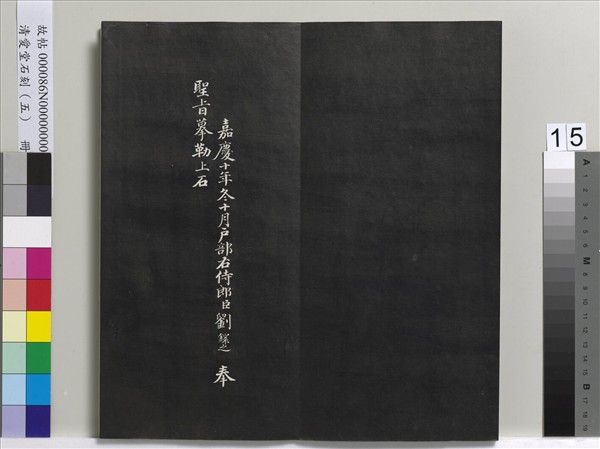 嘉慶十年冬十月戶部右侍郎臣劉鐶之奉
聖旨摹勒上石
故帖 000086N000000000
清愛堂石刻（五） 冊
15
A
1
2
3
4
5
6
M
8
9
10
11
12
13
14
15
B
17
18
19